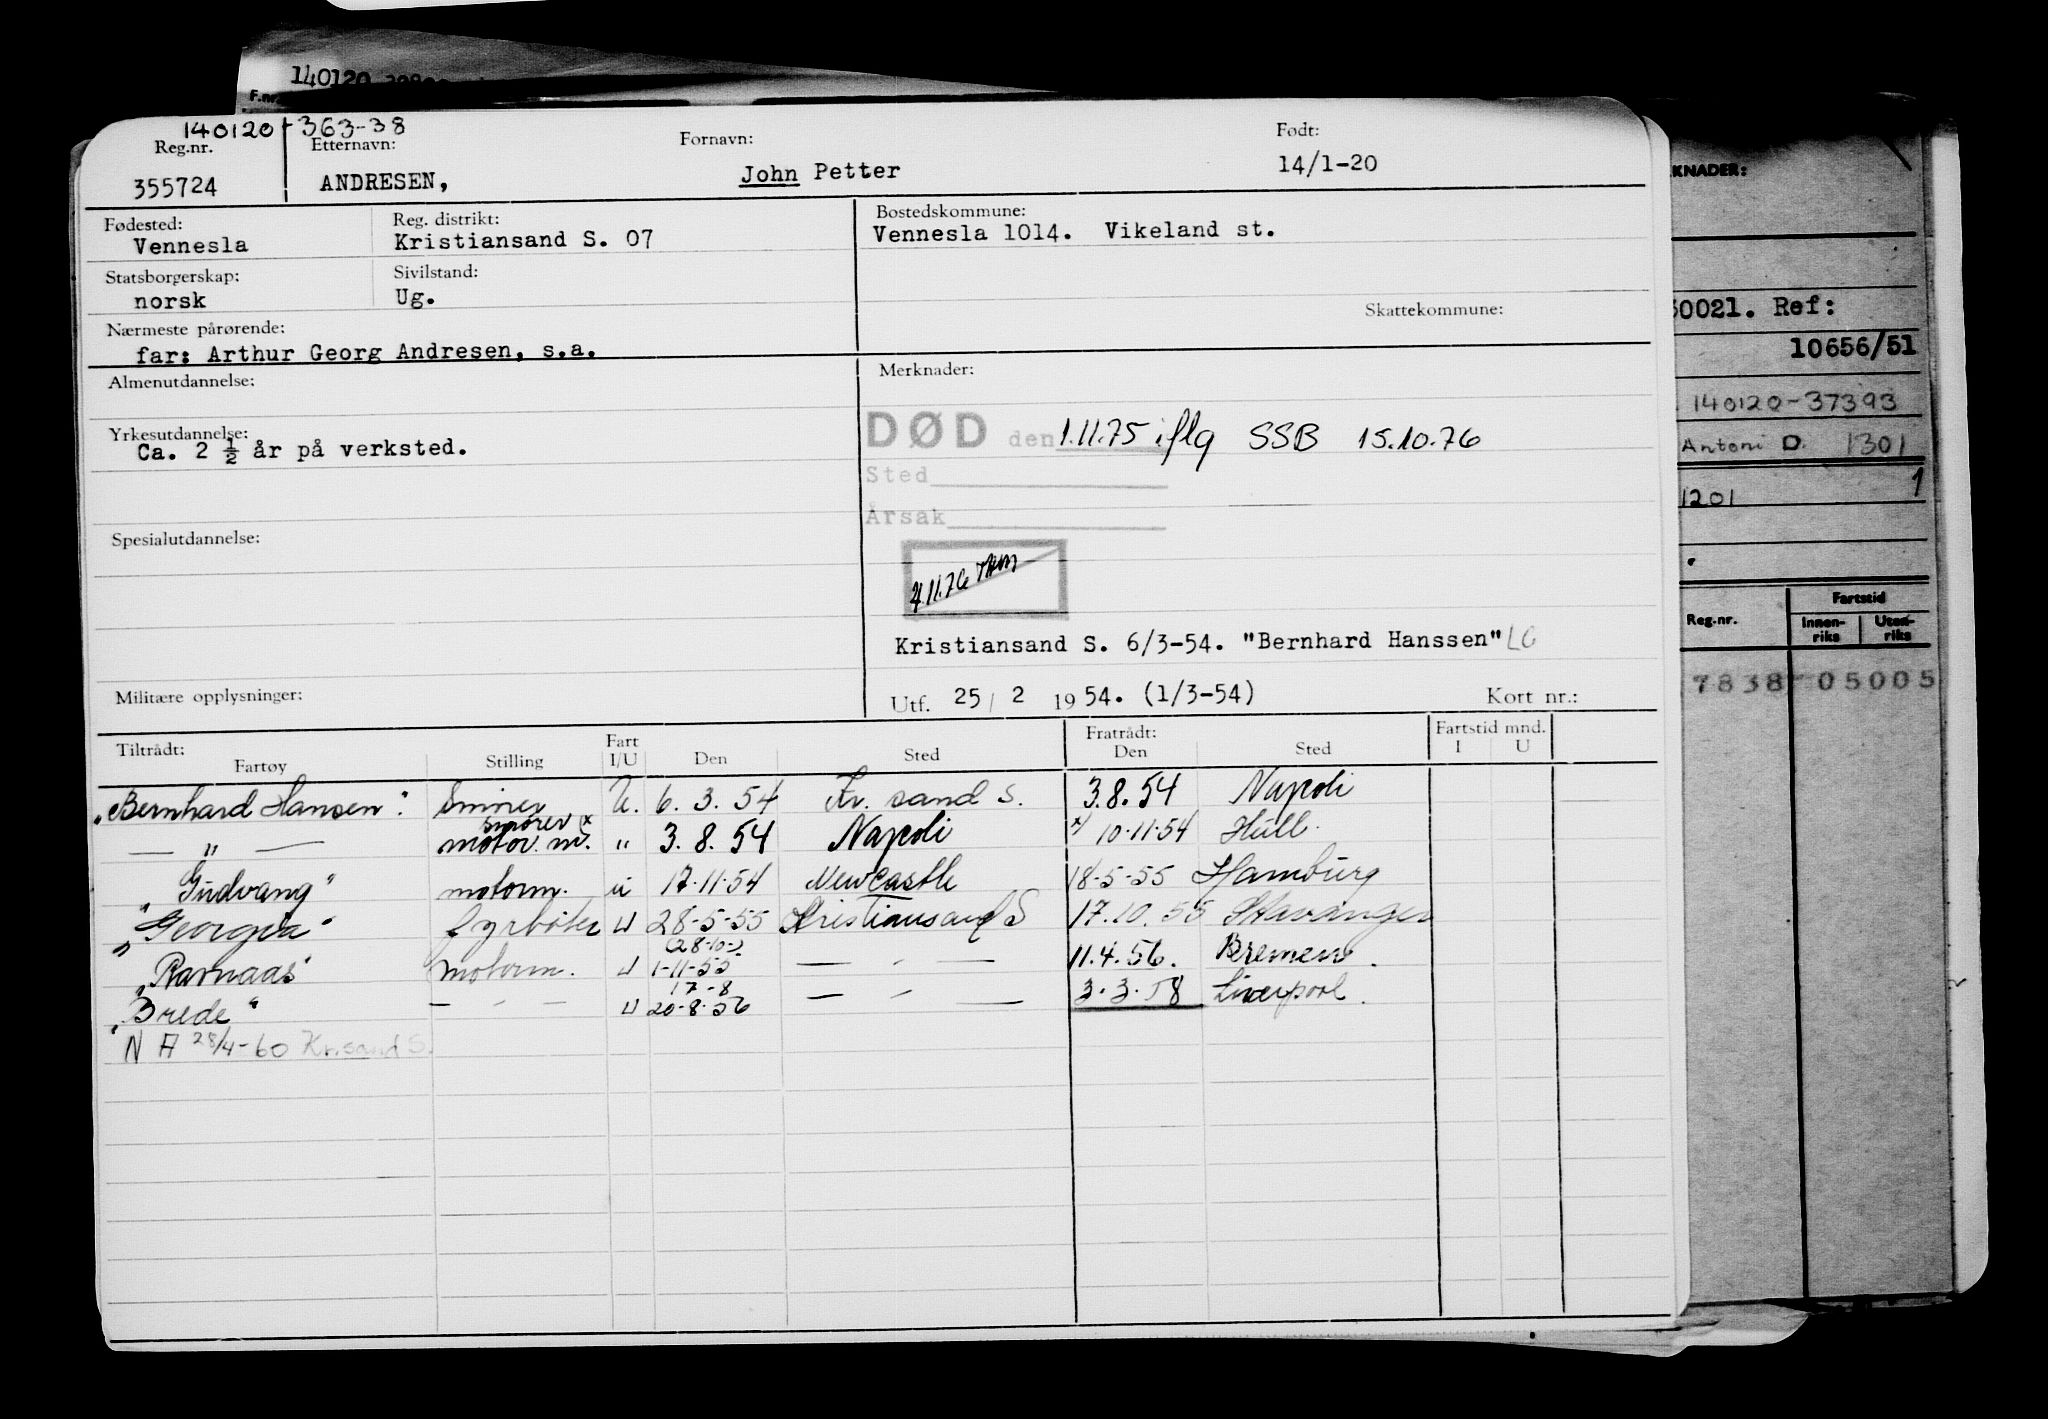 140120
F.nr
140120-363-38
Reg.nr. Etternavn: Fornavn: Født:
355724 ANDRESEN, John Petter 14/1-20
Fødested: Reg. distrikt: Bostedskommune:
Vennesla Kristiansand S. 07 Vennesla 1014. Vikeland st.
Statsborgerskap: Sivilstand:
norsk Ug.
Skattekommune:
Nærmeste pårørende:
far: Arthur Georg Andresen, s.a.
Almenutdannelse: Merknader:
DØD den 1.11.75 iflg SSB 15.10.76
Yrkesutdannelse:
Ca. 2 ½ år på verksted.
Sted
Årsak
Spesialutdannelse:
4.11.76
Kristiansand S. 6/3-54. "Bernhard Hanssen" LG
Militære opplysninger: Utf. 25/2 1954. (1/3-54) Kort nr.:
Tiltrådt: Fart Fratrådt: Fartstid mnd.
Fartøy Stilling I/U Den Sted Den Sted I U
"Bernhard Hansen". Smører U. 6.3.54 Kr. sand S. 3.8.54 Napoli
smører x
— " — motor.m. " 3.8.54 Napoli x) 10-11-54 Hull.
"Gudvang" motorm. u 17-11-54 Newcastle 18-5-55 Hamburg
"Georgia" fyrbøter U 28-5-55 Kristiansand S 17.10.55 Stavanger
(28-10-)
"Ravnaas" motorm. U 1-11-55 — " — 11.4.56. Bremen.
17-8
"Brede" — " — U 20-8-56 — " — 3.3.58 Liverpool.
N A 28/4-60 Kr.sand S.
KNADER:
0021. Ref:
10656/51
140120-37393
Antoni D. 1301
1201 1
Reg.nr. Fartstid
Innen-riks Uten-riks
7838 05005